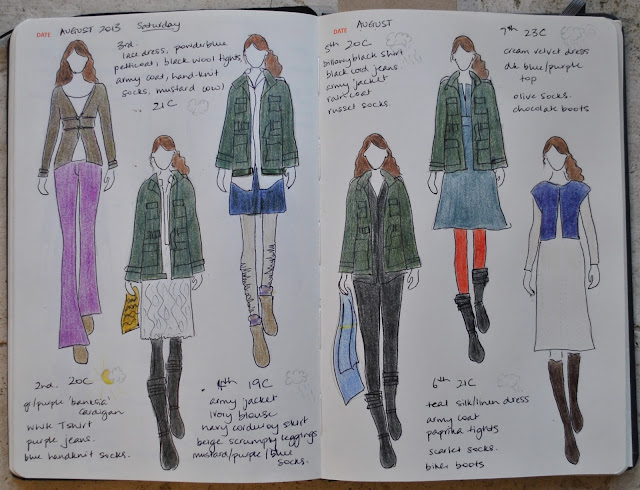 DATE AUGUST 2013 Saturday
3rd.
lace dress, powderblue
petticoat, black wool tights,
army coat, hand-knit
socks, mustard cowl
21C
2nd. 20C
gr/purple 'banksia'
cardigan
white Tshirt
purple jeans.
blue handknit socks.
4th 19C
army jacket
ivory blouse
navy corduroy skirt
beige scrumply leggings
mustard/purple/blue
socks.
DATE AUGUST
5th 20C
black shirt
black cord jeans
army jacket
raincoat
russet socks.
7th 23C
cream velvet dress
dk blue/purple
top
olive socks.
chocolate boots
6th 21C
teal silk/linen dress
army coat
paprika tights
scarlet socks.
biker boots